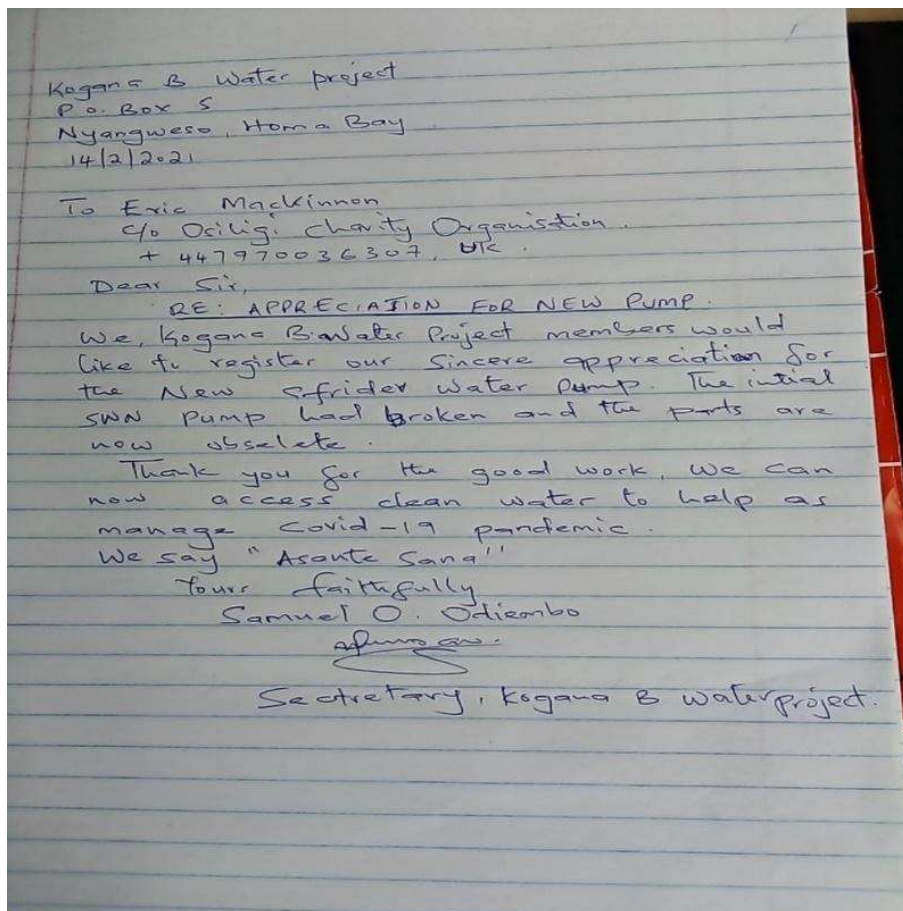 Kogana B Water project
P.o. Box 5
Nyangweso, Homa Bay
14/2/2021
To Eric Mackinnon
c/o Osiligi Charity Organistion.
+ 447970036307, UK.
Dear Sir,
RE: APPRECIATION FOR NEW PUMP.
We, Kogana B Water Project members would
like to register our Sincere appreciation for
the New Afridev Water Pump. The intial
SWN Pump had broken and the parts are
now obselete.
Thank you for the good work, we can
now access clean water to help as
manage Covid-19 pandemic.
We say "Asante Sana"
Yours faithfully
Samuel O. Odiembo
Sectretary, Kogana B water project.